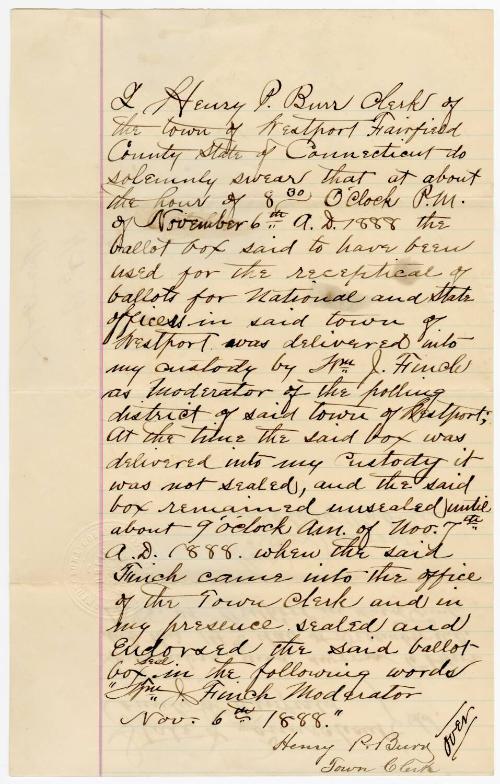 I Henry P. Burr Clerk of
the town of Westport Fairfield
County State of Connecticut do
solemnly swear that at about
the hour of 8 30 O'Clock P.M.
of November 6th A.D. 1888 the
ballot box said to have been
used for the receptical of
ballots for National and State
officers in said town of
Westport was delivered into
my custody by Wm J. Finch
as moderator of the polling
district of said town of Westport;
At the time the said box was
delivered into my custody it
was not sealed, and the said
box remained unsealed until
about 9 o'clock A.m. of Nov. 7th
A.D. 1888. when the said
Finch came into the office
of the Town Clerk and in
my presence sealed and
Endorsed the said ballot
box seal in the following words
"Wm J Finch Moderator
Nov. 6th 1888."
Henry P. Burr
Town Clerk
over